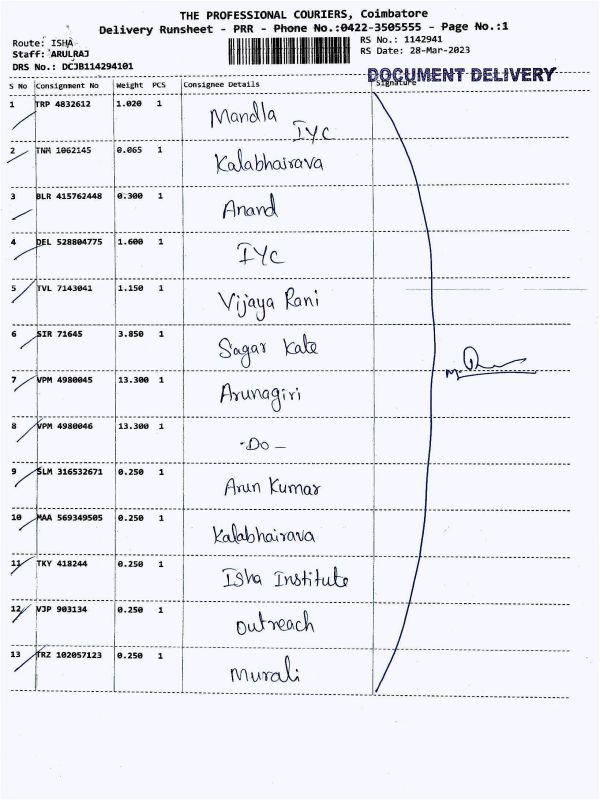 THE PROFESSIONAL COURIERS, Coimbatore
Delivery Runsheet - PRR - Phone No.:0422-3505555 - Page No.:1
Route: ISHA
Staff: ARULRAJ
DRS No.: DCJB114294101
RS No.: 1142941
RS Date: 28-Mar-2023
DOCUMENT DELIVERY
S No Consignment No Weight PCS Consignee Details Signature
1 TRP 4832612 1.020 1 Mandla
IYC
2 TNM 1062145 0.065 1 Kalabhairava
3 BLR 415762448 0.300 1 Anand
4 DEL 528804775 1.600 1 IYC
5 TVL 7143041 1.150 1 Vijaya Rani
6 SIR 71645 3.850 1 Sagar Kate
7 VPM 4980045 13.300 1 Arunagiri
8 VPM 4980046 13.300 1 -Do-
9 SLM 316532671 0.250 1 Arun Kumar
10 MAA 569349505 0.250 1 Kalabhairava
11 TKY 418244 0.250 1 Isha Institute
12 VJP 903134 0.250 1 Outreach
13 TRZ 102057123 0.250 1 Murali